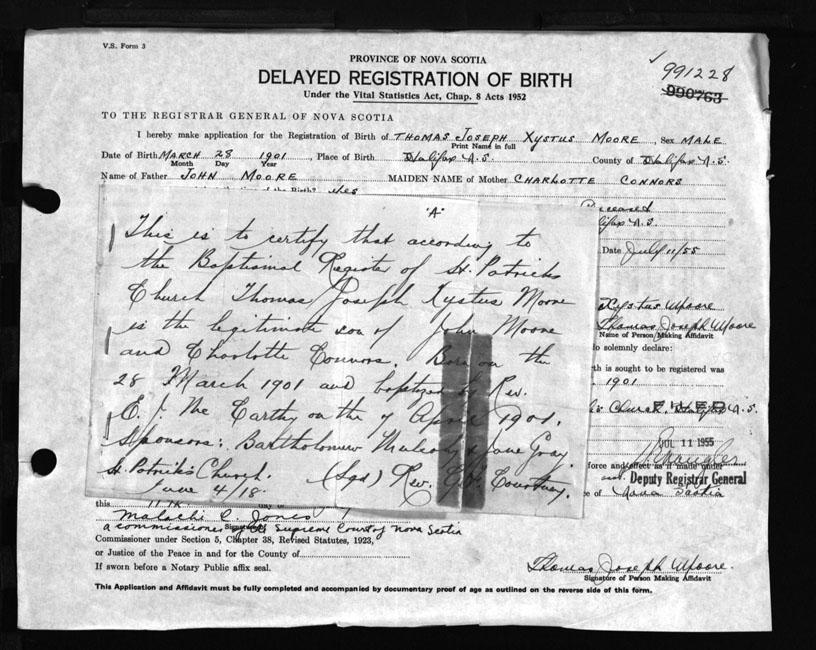 V.S. Form 3
PROVINCE OF NOVA SCOTIA
DELAYED REGISTRATION OF BIRTH
Under the Vital Statistics Act, Chap. 8 Acts 1952
991228
990763
TO THE REGISTRAR GENERAL OF NOVA SCOTIA
I hereby make application for the Registration of Birth of THOMAS JOSEPH XYSTUS MOORE, Sex MALE
Print Name in full
Date of Birth MARCH 28 1901, Place of Birth Halifax N.S. County of Halifax N.S.
Month Day Year
Name of Father JOHN MOORE MAIDEN NAME of Mother CHARLOTTE CONNORS
of the Birth? yes
Deceased
lifax N.S.
Date July 11/55
"A"
This is to certify that according to
the Baptismal Register of St. Patricks
Church Thomas Joseph Xystus Moore
is the legitimate son of John Moore
and Charlotte Connors. Born on the
28 March 1901 and baptized by Rev.
E. J. Mc Carthy on the 7 April 1901.
Sponsors: Bartholomew & Jane Gray.
St. Patricks Church. (Sgd) Rev. Courtney.
June 4/18
Xystus Moore
Thomas Joseph Moore
Name of Person Making Affidavit
to solemnly declare:
th is sought to be registered was
1901
Church, Halifax N.S.
FILED
JUL 11 1955
force and effect as if made under
Deputy Registrar General
ce of Nova Scotia
this 11th day of
Malachi C. Jones
Signature
a commissioner of the Supreme Court of Nova Scotia
Commissioner under Section 5, Chapter 38, Revised Statutes, 1923,
or Justice of the Peace in and for the County of
If sworn before a Notary Public affix seal.
Thomas Joseph Moore.
Signature of Person Making Affidavit
This Application and Affidavit must be fully completed and accompanied by documentary proof of age as outlined on the reverse side of this form.